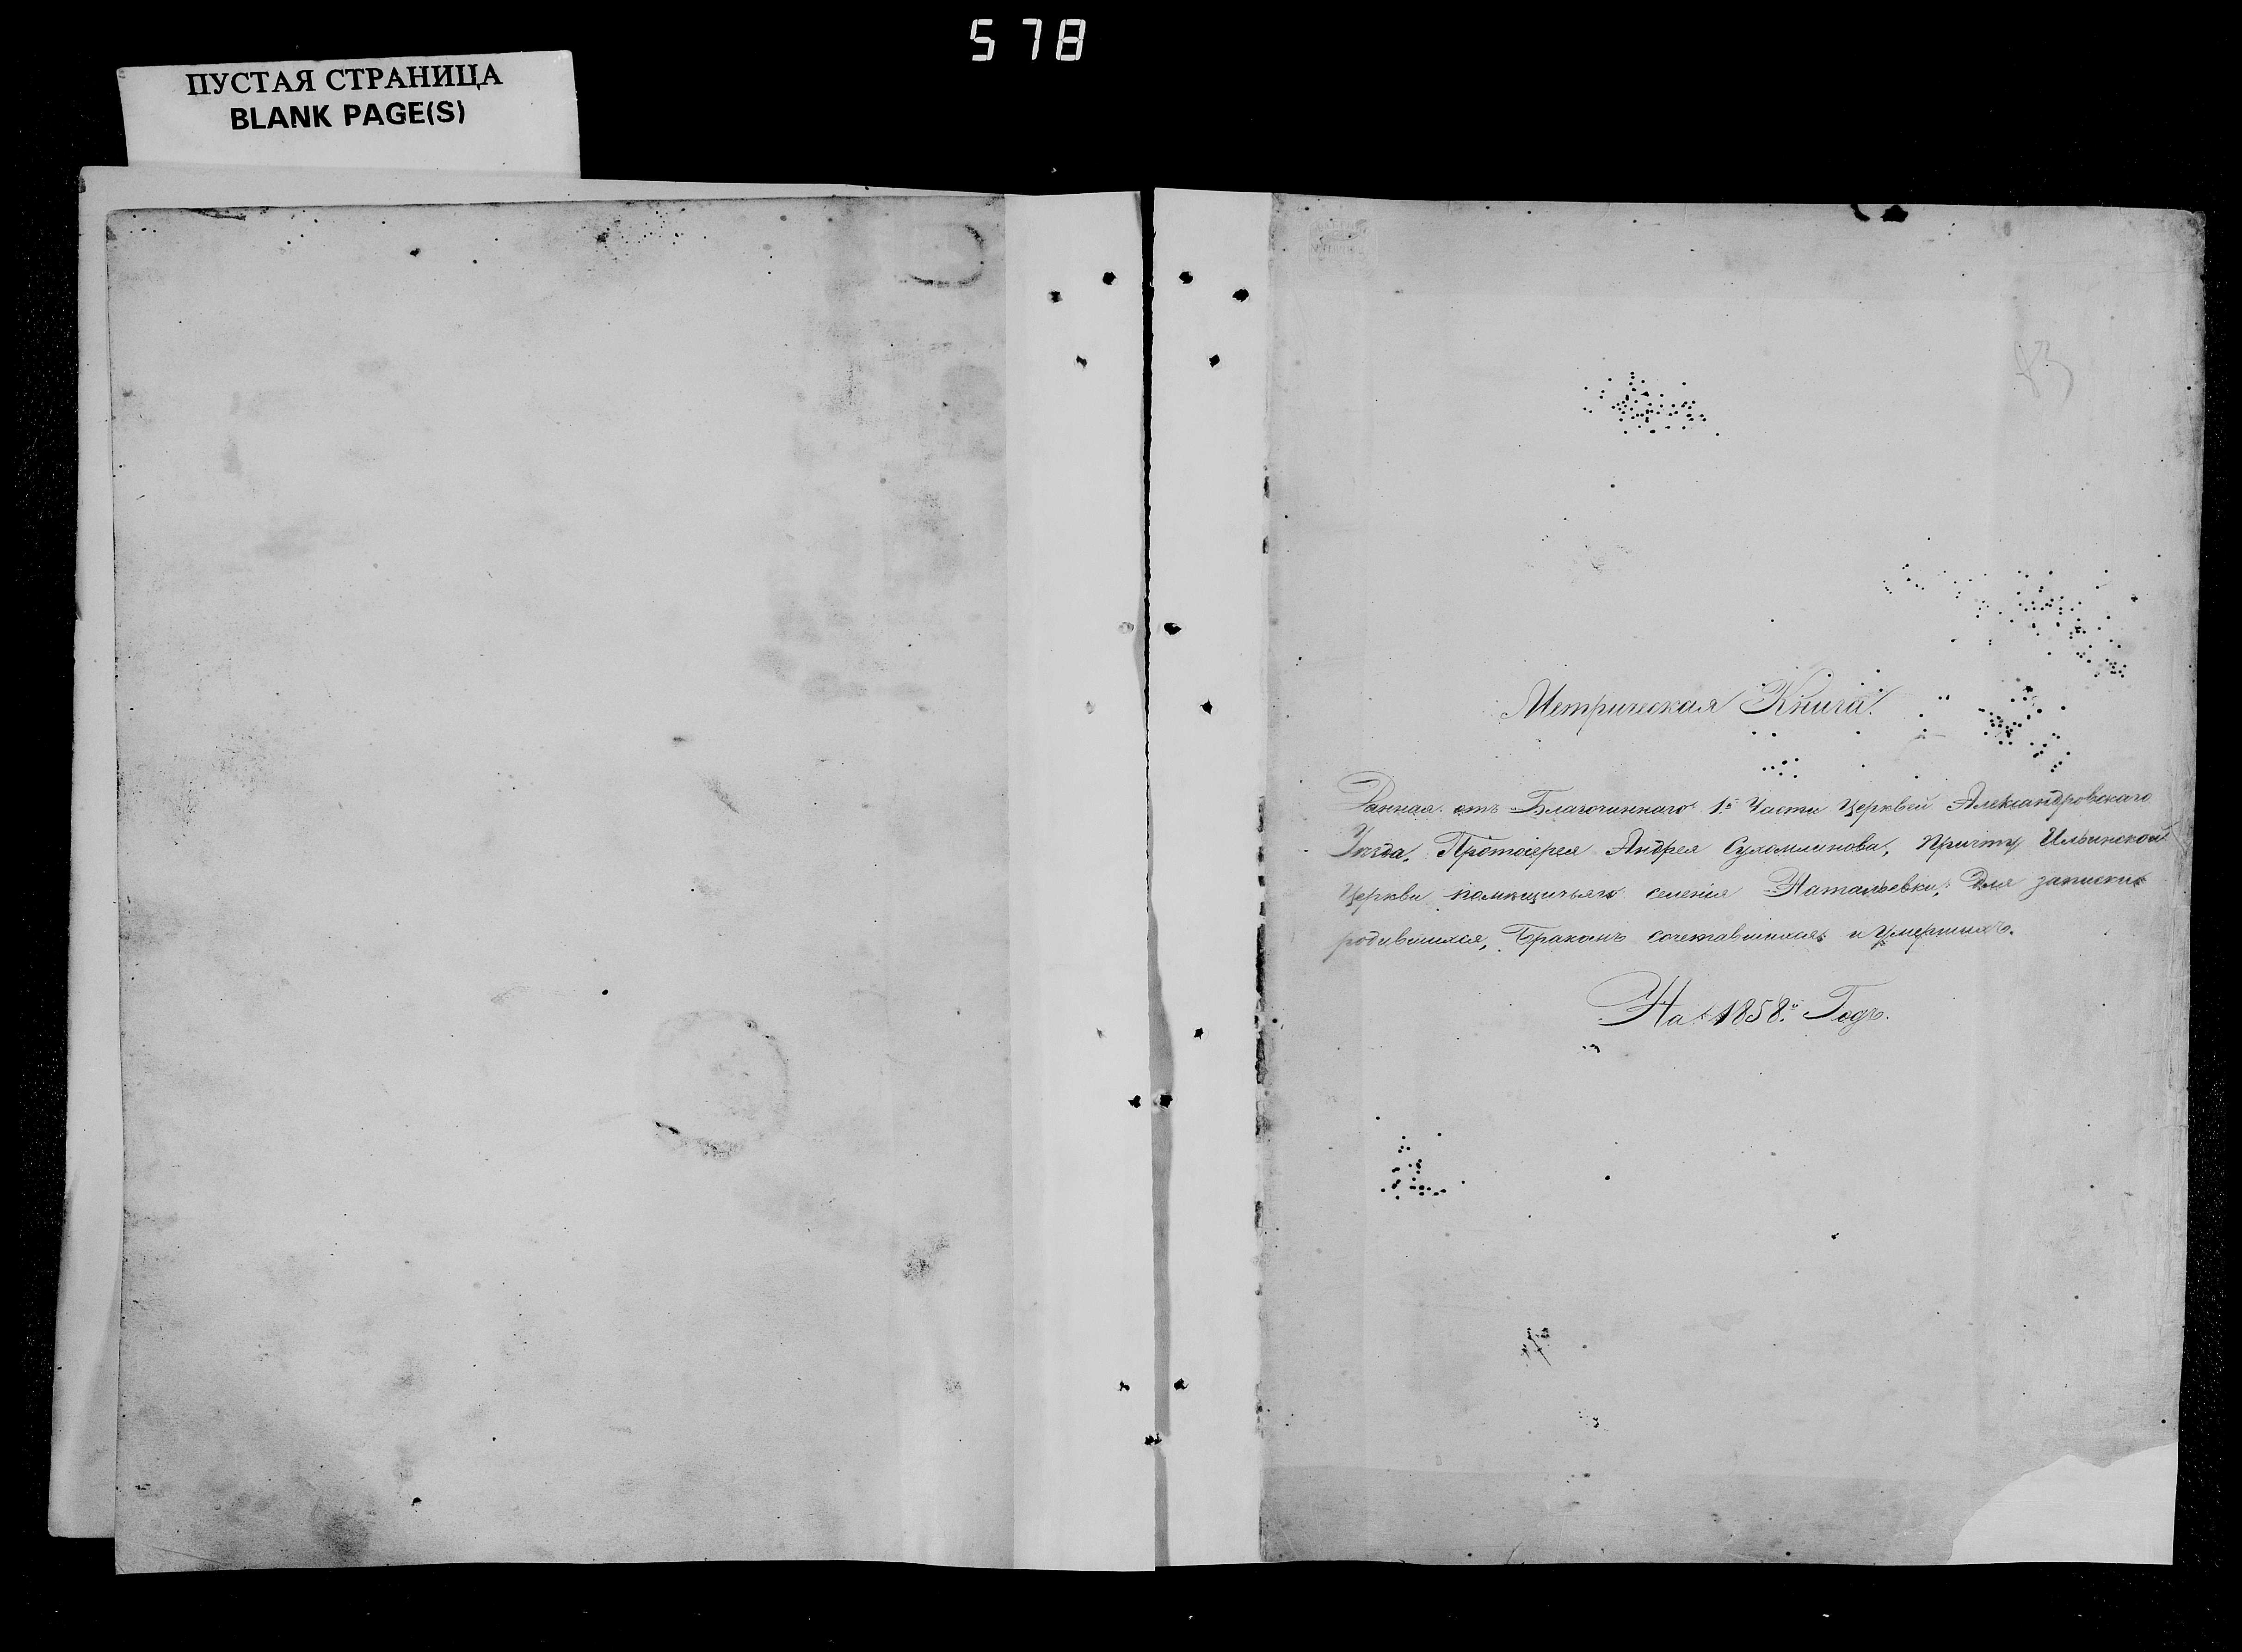 578
ПУСТАЯ СТРАНИЦА
BLANK PAGE(S)
83
Метрическая Книга.
Данная отъ Благочиннаго 1й Части Церквей Александровскаго
Уѣзда, Протоіерея Андрея Сухомлинова, Причту Ильинской
Церкви помѣщичьяго селенія Натальевки, Для записки
родившихся, Бракомъ сочетавшихся и Умершихъ.
На 1858й Годъ.